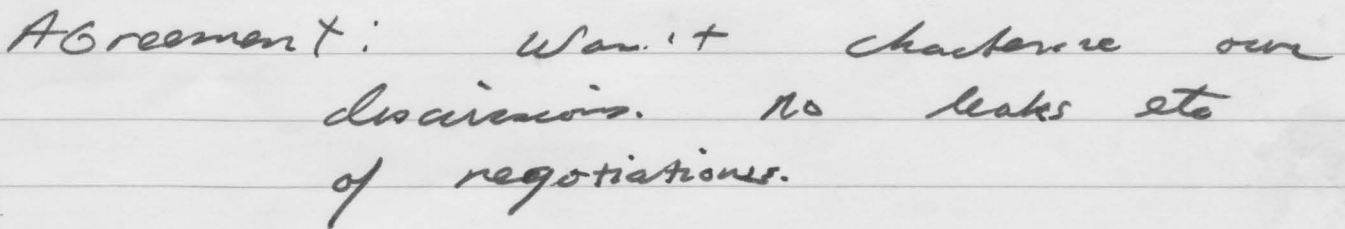 AGreement: Won't chacterize our
discussions. no leaks etc
of negotiations.